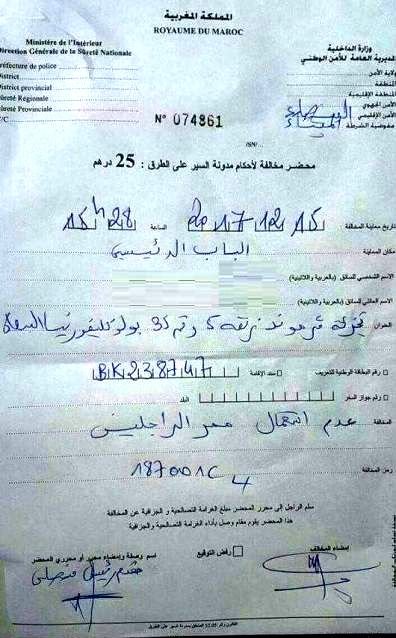 المملكة المغربية
ROYAUME DU MAROC
Ministère de l'Intérieur
Direction Générale de la Sûreté Nationale
Préfecture de police
District
District provincial
Sûreté Régionale
Sûreté Provinciale
وزارة الداخلية
المديرية العامة للأمن الوطني
ولاية الأمن
المنطقة
المنطقة الإقليمية
الأمن الجهوي
الأمن الإقليمي
مفوضية الشرطة
N° 074861
/SN/
محضر مخالفة لأحكام مدونة السير على الطرق : 25 درهم
تاريخ معاينة المخالفة 2017 12 15 الساعة 15h28
مكان المعاينة الباب الرئيسي
الاسم الشخصي للسائق (بالعربية واللاتينية)
الاسم العائلي للسائق (بالعربية واللاتينية)
العنوان زنقة 5 رقم 35
رقم البطاقة الوطنية للتعريف سند الإقامة BK238747
رقم جواز السفر البلد
المخالفة عدم استعمال ممر الراجلين
رمز المخالفة 187001C4
سلم الراجل إلى محرر المحضر مبلغ الغرامة التصالحية و الجزافية عن المخالفة
هذا المحضر يقوم مقام وصل بأداء الغرامة التصالحية والجزافية
إمضاء المخالف
رفض التوقيع
اسم وصفة وإمضاء محرر أو محرري المحضر